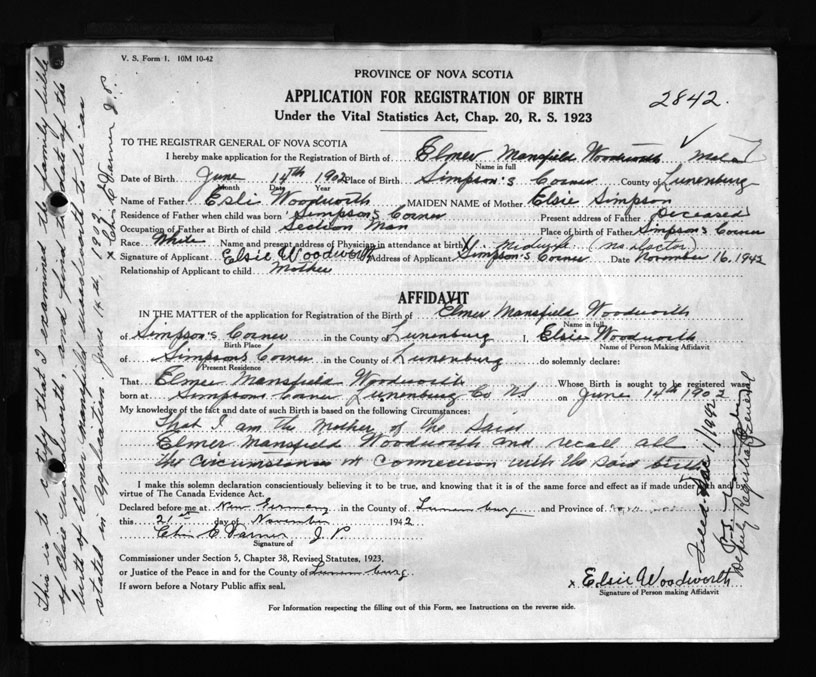 V. S. Form 1. 10M 10-42
PROVINCE OF NOVA SCOTIA
APPLICATION FOR REGISTRATION OF BIRTH
2842.
Under the Vital Statistics Act, Chap. 20, R. S. 1923
TO THE REGISTRAR GENERAL OF NOVA SCOTIA
I hereby make application for the Registration of Birth of Elmer Mansfield Woodworth ✓ Male
Name in full
Date of Birth June 14th 1902 Place of Birth Simpson's Corner County of Lunenburg
Month Date Year
Name of Father Esli Woodworth MAIDEN NAME of Mother Elsie Simpson
Residence of Father when child was born Simpson's Corner Present address of Father Deceased
Occupation of Father at Birth of child Section Man Place of birth of Father Simpson's Corner
Race White Name and present address of Physician in attendance at birth Midwife (no doctor)
Signature of Applicant Elsie Woodworth Address of Applicant Simpson's Corner Date November 16, 1942
Relationship of Applicant to child Mother
AFFIDAVIT
IN THE MATTER of the application for Registration of the Birth of Elmer Mansfield Woodworth
Name in full
of Simpson's Corner in the County of Lunenburg I, Elsie Woodworth
Birth Place Name of Person Making Affidavit
of Simpson's Corner in the County of Lunenburg do solemnly declare:
Present Residence
That Elmer Mansfield Woodworth Whose Birth is sought to be registered was
born at Simpsons Corner Lunenburg Co NS on June 14th 1902
My knowledge of the fact and date of such Birth is based on the following Circumstances:
That I am the mother of the said
Elmer Mansfield Woodworth and recall all
the circumstances in connection with the said birth
I make this solemn declaration conscientiously believing it to be true, and knowing that it is of the same force and effect as if made under oath and by
virtue of The Canada Evidence Act.
Declared before me at New Germany in the County of Lunenburg and Province of
this 21st day of November 1942
C. Varner J. P.
Signature of
Commissioner under Section 5, Chapter 38, Revised Statutes, 1923,
or Justice of the Peace in and for the County of Lunenburg.
If sworn before a Notary Public affix seal.
x Elsie Woodworth
Signature of Person making Affidavit
For Information respecting the filling out of this Form, see Instructions on the reverse side.
This is to certify that I examined the family bible
of Elsie Woodworth and find the date of the
birth of Elmer Mansfield Woodworth to be as
stated in Application. June 14th, 1902
x C. Varner J. P.
Filed Dec 1/1942
Deputy Registrar General